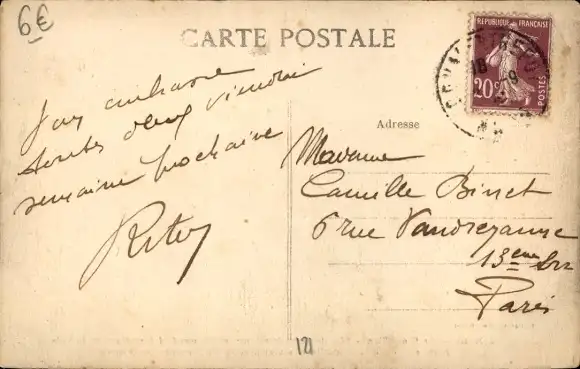 6€
CARTE POSTALE
REPUBLIQUE FRANÇAISE
20c
POSTES
Adresse
toutes deux viendrai
semaine prochaine
Madame
Camille Binet
6 rue Vandrezanne
13eme Arr
Paris
121